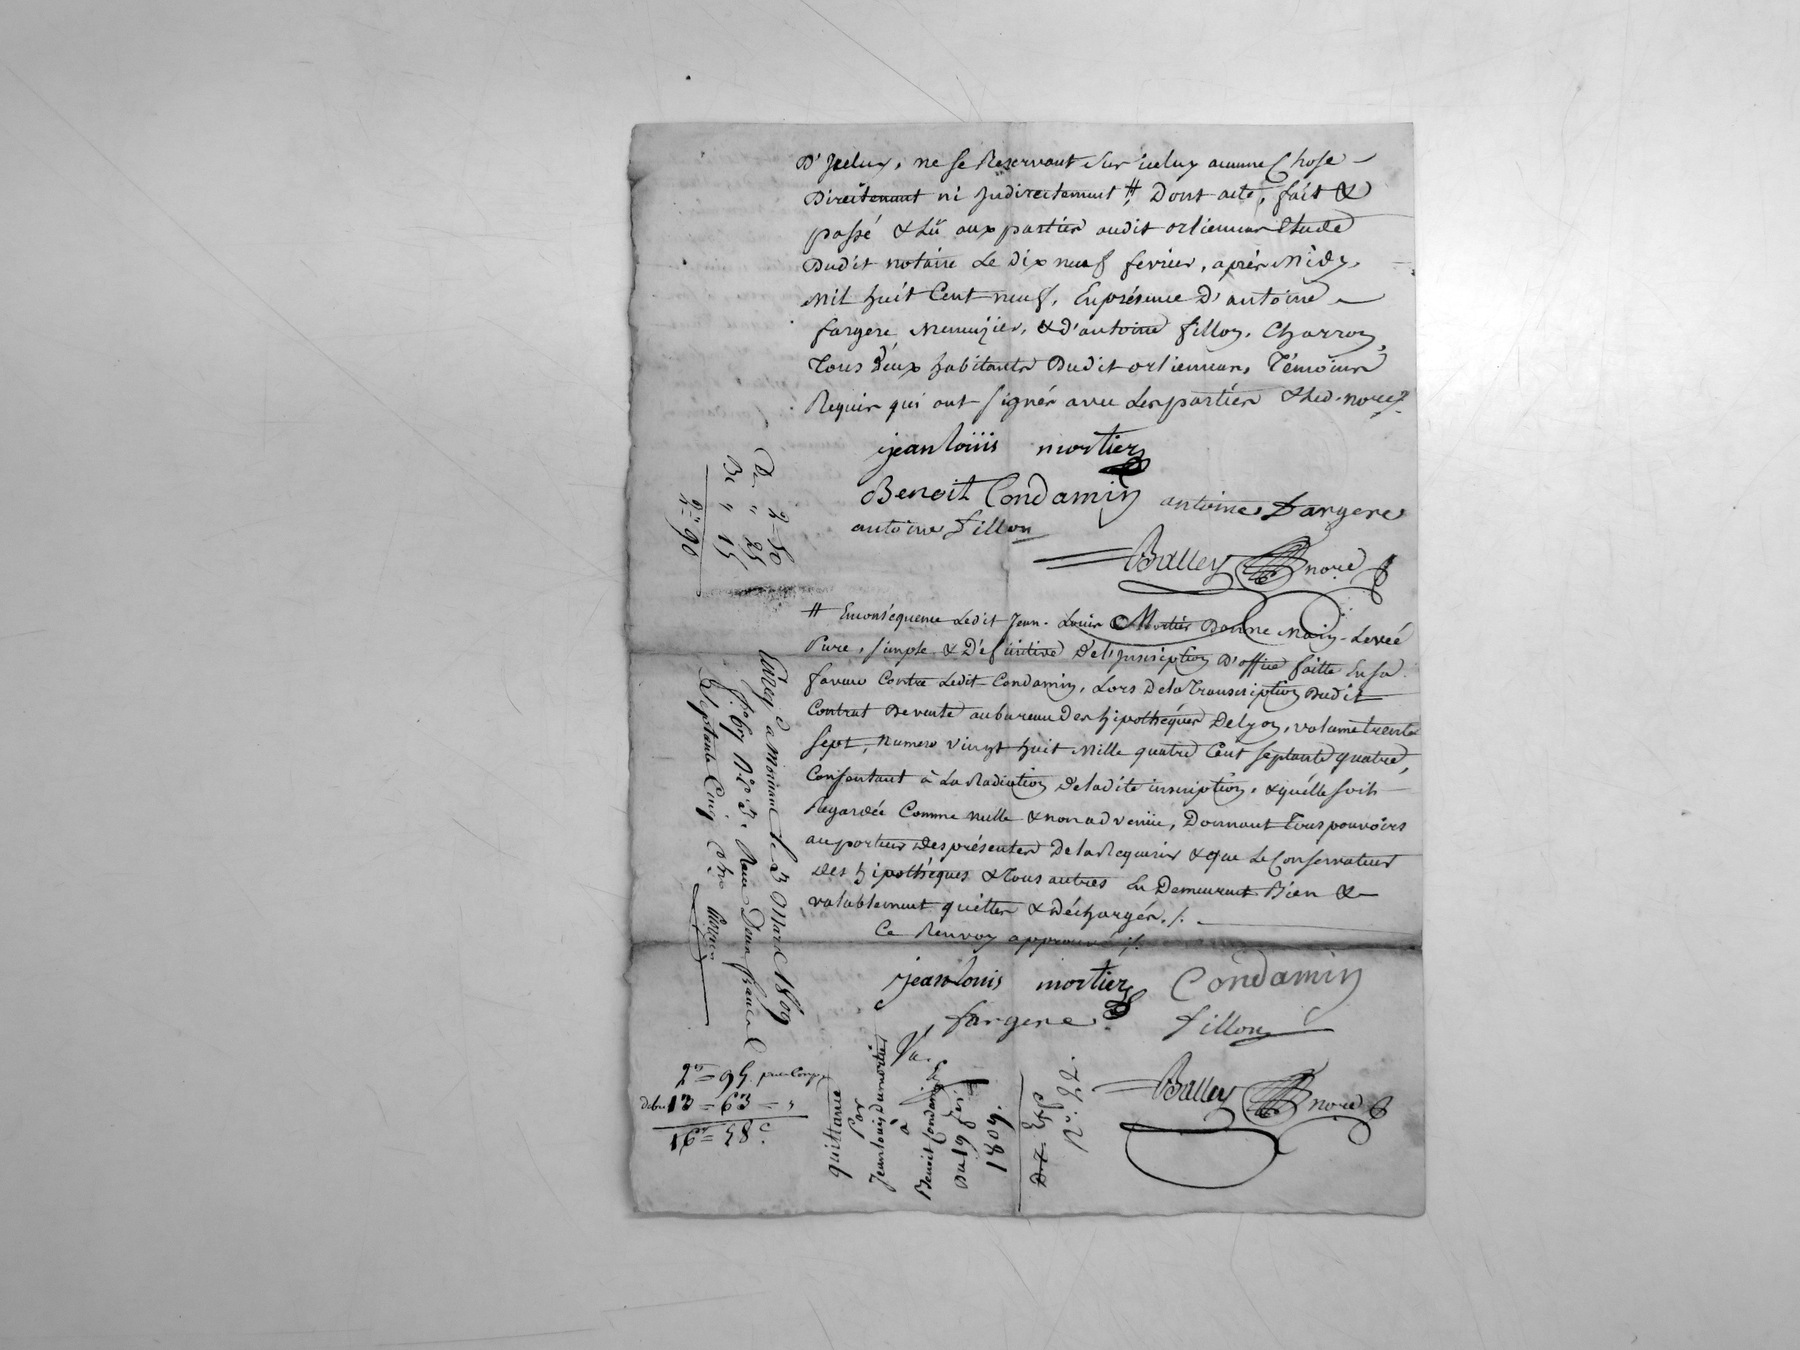 D'Jcelux, ne se Reservant sur icelux aucune Chose
Directement ni Indirectement # Dont acte, fait &
passé & Lû aux partier audit orliennas Etude
Dudit notaire Le Dix neuf fevrier, après Midy,
Mil huit Cent neuf, En présence D'antoine
fargere Menuizier, & d'antoine fillon, Charron,
Tous Deux habitants Dudit orliennas, Témoins
Requis qui ont signés avec Les partiés & Led. nore
jean loüis mortier
Benoit Condamin antoine Fargere
antoine fillon
Balley nore
# En conséquence Ledit Jean-Louis Mortier Donne Main-Levée
Pure, simple & Définitive De l'Inscription D'office faitte En sa
faveur Contre Ledit Condamin, Lors De la Transcription Dudit
Contrat De vente au bureau Des hipothéques De Lyon, volume trente
sept, numero vingt huit Mille quatre Cent septante quatre,
Consentant à La Radiation De ladite inscription, & quélle soit
Regardée Comme nulle & non advenüe, Donnant Tous pouvoirs
au porteur Des présentes De la Requerir & que Le Conservateur
Des hipothéques & Tous autres En Demeurent Bien &
valablement quittes & Déchargés ./.
Ce Renvoy approuvé ./.
jean louis mortier Condamin
fargere fillon
Balley nore
2 = 50
De " 25
Be " 15
2 = 90
a Mornant le 3 Mars 1809
Septante Cinq
2 = 95
13 = 63
16 = 58 c
quittance
Par
Jean louis Du mortier
à
Benoit Condamin
Du 19 fer
1809.
Exp
No. 22